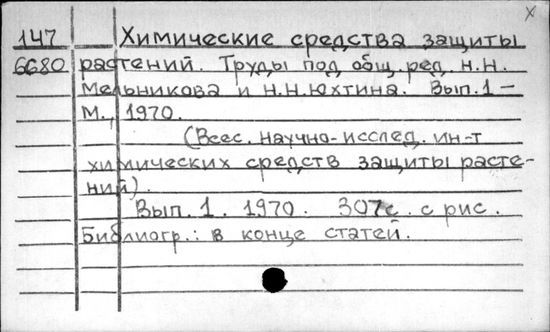 147 Химические средства защиты
6680 растений. Труды под общ. ред. Н.Н.
Мельникова и Н.Н. Юхтина. Вып. 1 –
М., 1970.
(Всес. научно-исслед. ин-т
химических средств защиты расте-
ний).
Вып. 1. 1970. 307с. с рис.
Библиогр.: в конце статей.